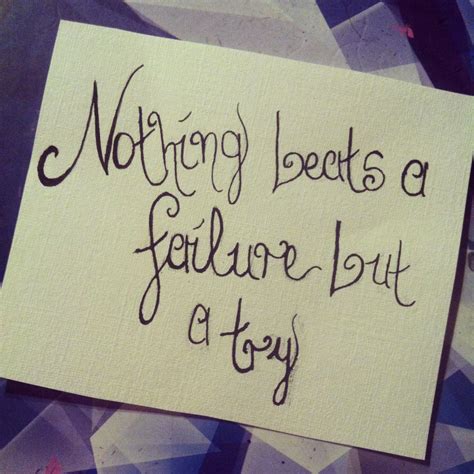 Nothing beats a
failure but
a try